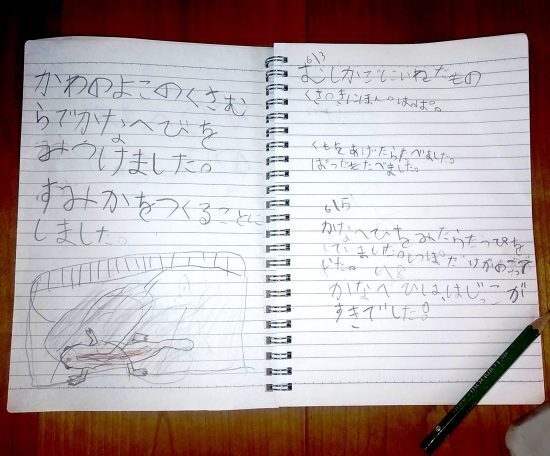 かわのよこのくさむ
らでかなへびを
みつけました。
すみかをつくることに
しました。
6/3
むしかごにいれたもの
くさ。き。にほん。はっぱ。
くもをあげたらたべました。
ばったもたべました。
6/5
かなへびをみたらだっぴを
していました。しっぽだけがめごって
やた。
6/8
かなへびは、はじっこが
すきでした。